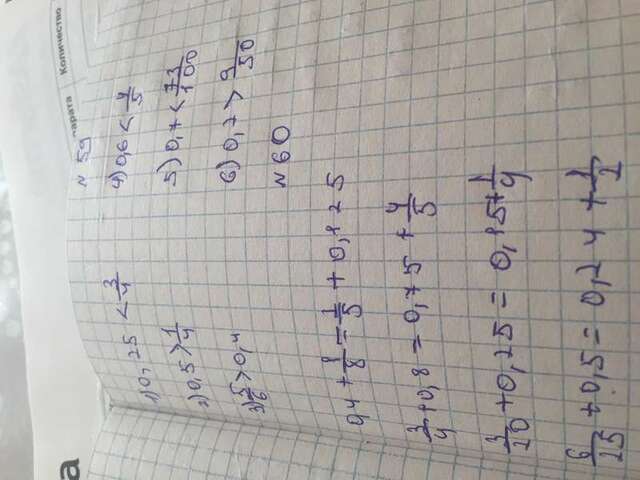 а
парата Количество
N 59
1) 0,25 < 3/4
2) 0,5 > 1/4
3) 5/6 > 0,4
4) 0,6 < 4/5
5) 0,7 < 73/100
6) 0,7 > 9/50
N 60
0,4 + 1/8 = 1/5 + 0,125
3/4 + 0,8 = 0,75 + 4/5
3/20 + 0,25 = 0,15 + 1/4
6/25 + 0,5 = 0,24 + 1/2